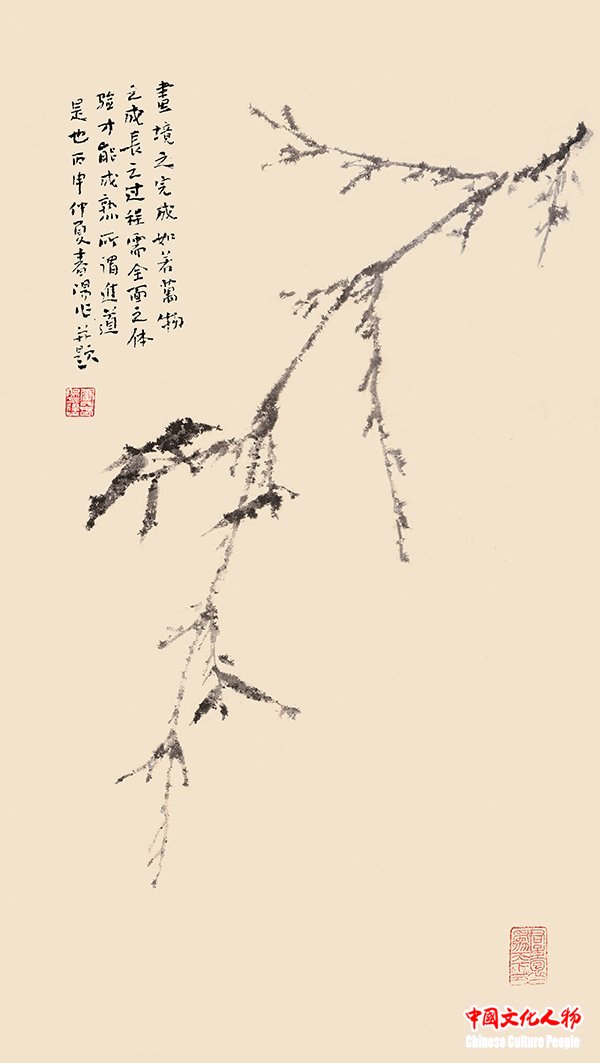 畫境之完成如若萬物
之成長之过程需全面之体
验才能成熟所谓進道
是也丙申仲夏春湯作并题
中國文化人物
Chinese Culture People